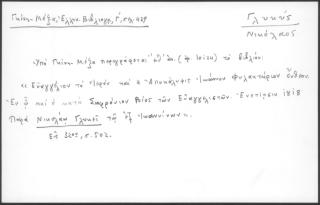 Γκίνη Μέξα, Ἑλλην. Βιβλιογρ., Γ΄, σελ. 429
Γλυκύς
Νικόλαος
Ὑπὸ Γκίνη - Μέξα περιγράφεται (ἀρ. 10124) τὸ βιβλίον:
« Εὐαγγέλιον τὸ Ἱερὸν καὶ ἡ Ἀποκάλυψις Ἰωάννου
Ἐν ᾧ καὶ ὁ κατὰ Σωφρόνιον Βίος τῶν Εὐαγγελιστῶν. Ἐνετίῃσιν 1818
Παρὰ Νικολάῳ Γλυκεῖ τῷ ἐξ Ἰωαννίνων».
Εἰς 320, σ. 502.